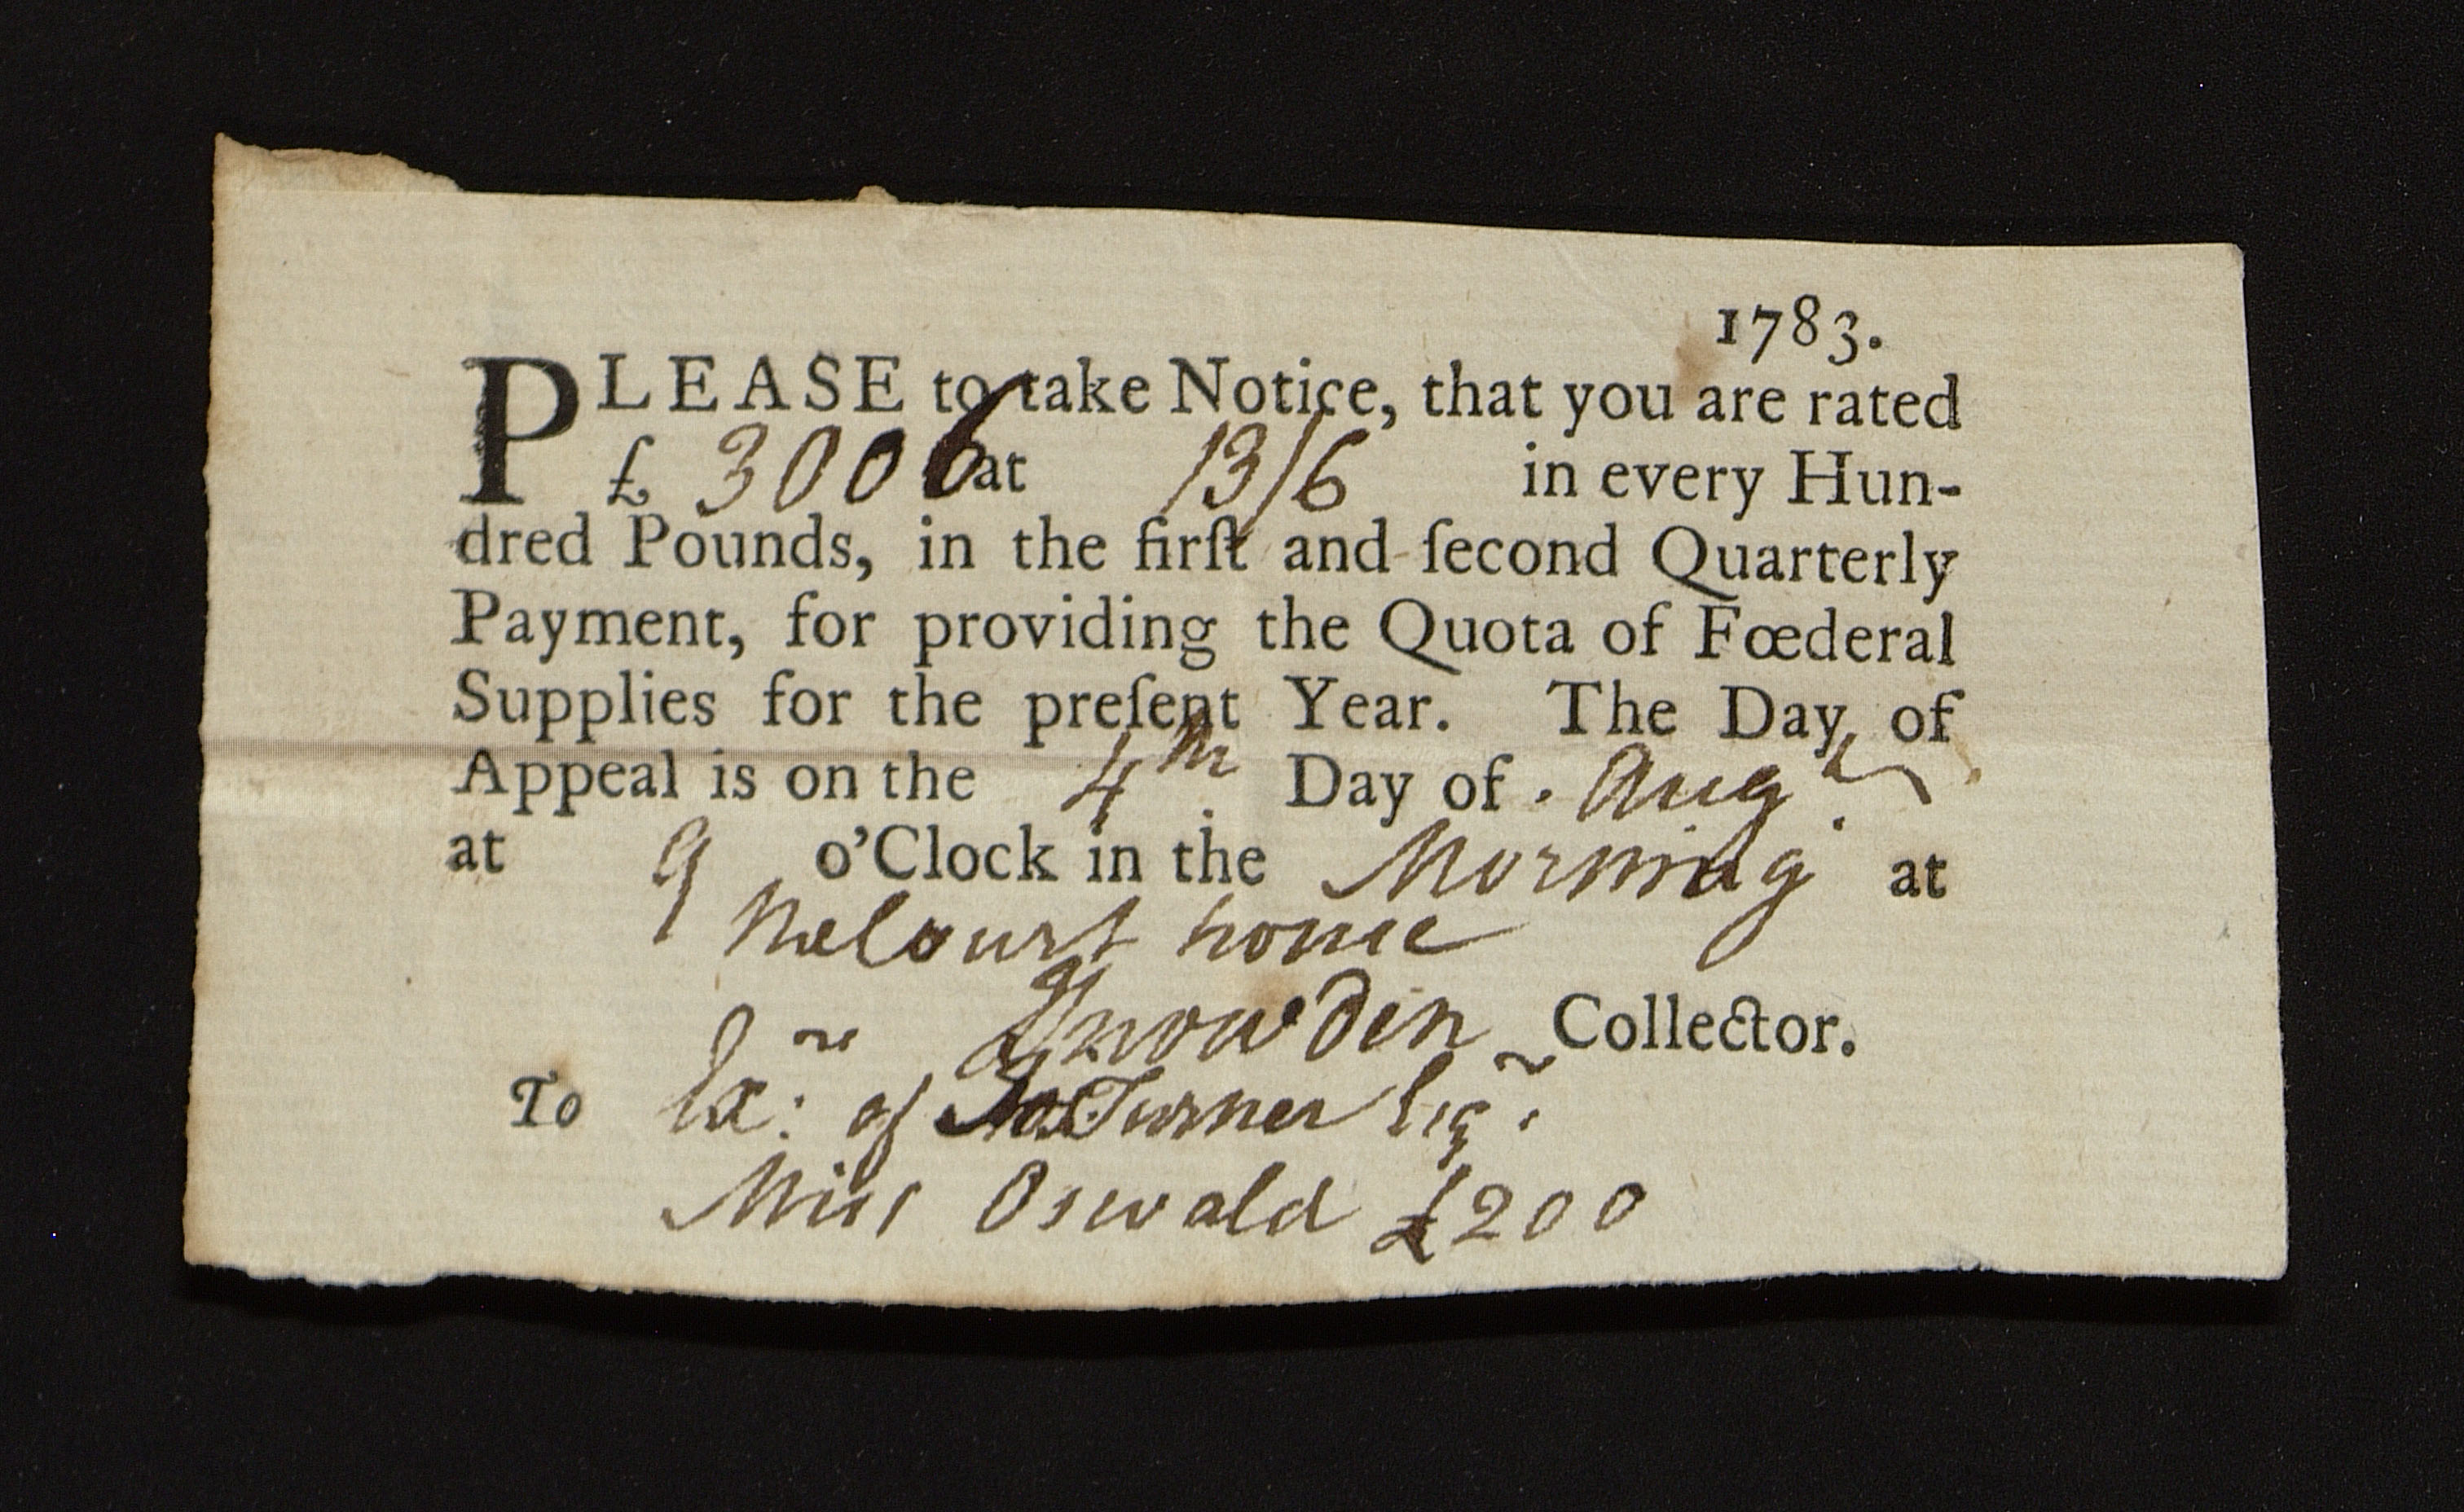 1783.
PLEASE to take Notice, that you are rated
£ 3006 at 13/6 in every Hun-
dred Pounds, in the firſt and ſecond Quarterly
Payment, for providing the Quota of Fœderal
Supplies for the preſent Year. The Day of
Appeal is on the 4th Day of Augt
at 9 o'Clock in the Morning at
the Court house
Snowden Collector.
To Ex: of Turner Esqr.
Miss Oswald £200